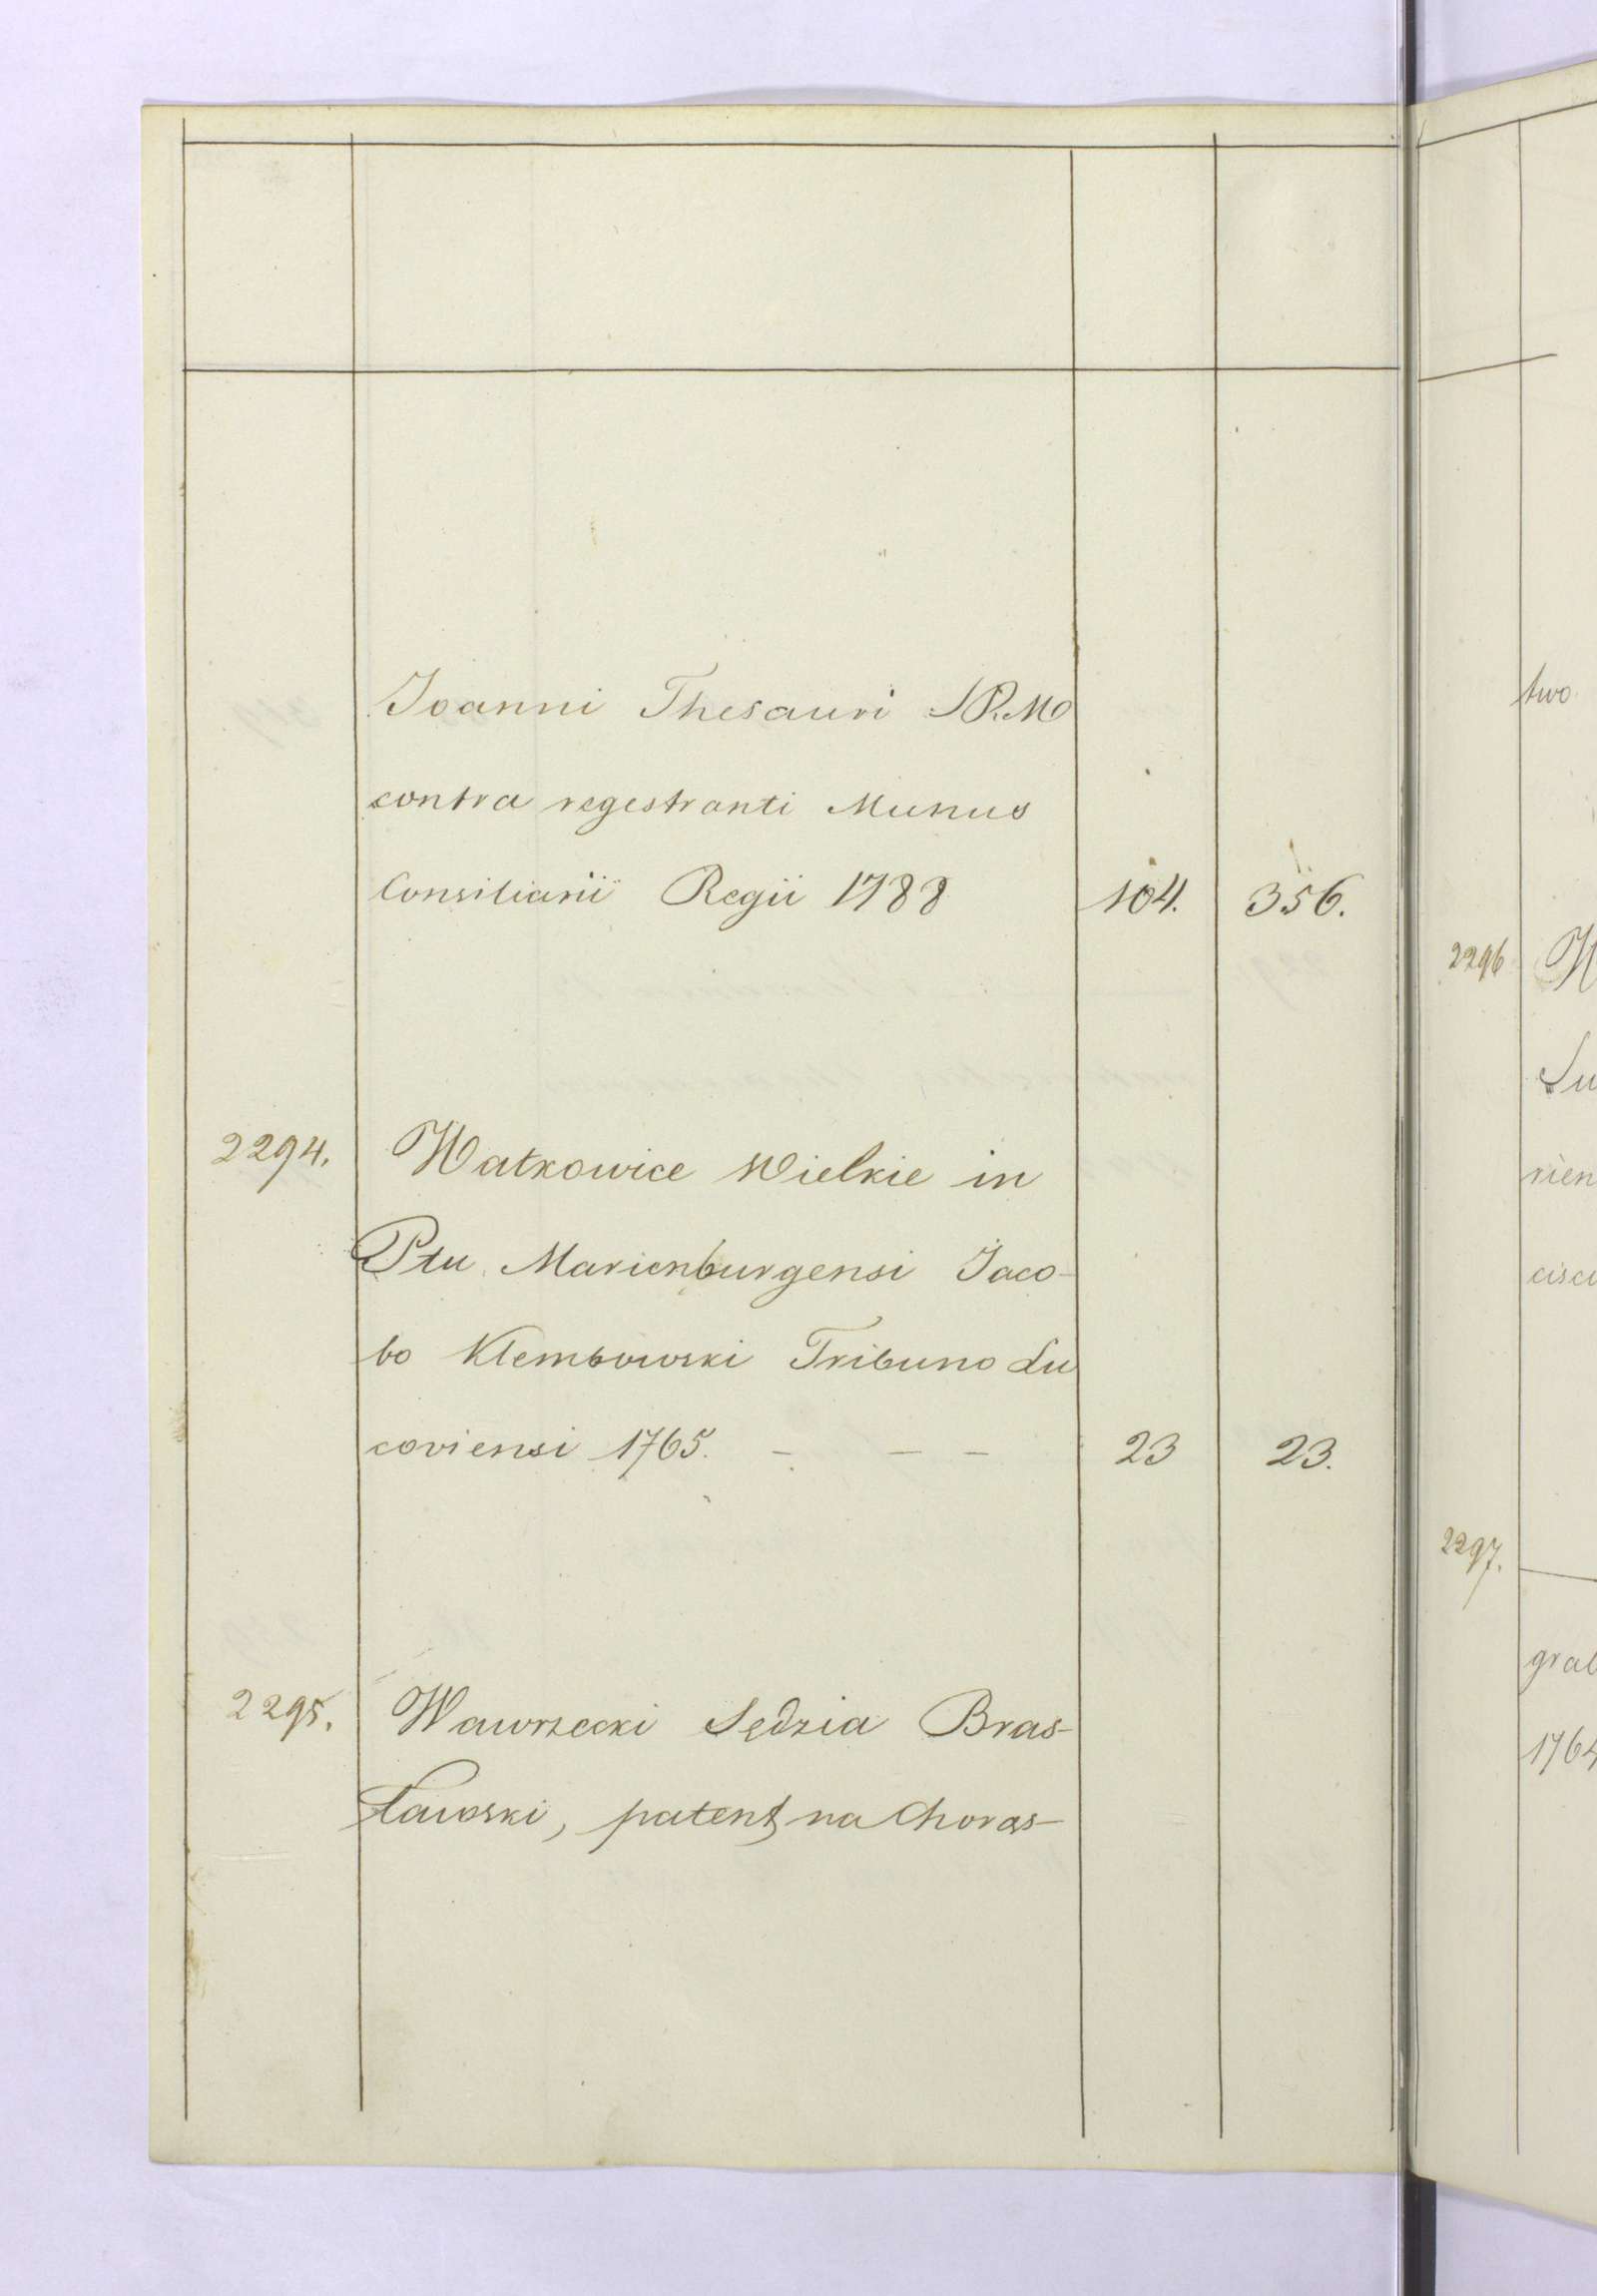 Joanni Thesauri
contra regestranti Munus
Consiliarii Regii 1788 104. 356.
2294. Watkowice Wielkie in
Ptu Marienburgensi Jaco-
bo Klembowski Tribuno Lu
coviensi 1765. - - - 23 23.
2295. Wawrzecki Sędzia Bras-
ławski, patent na Chorąs-
two
2296
Lu
rien
cisci
2297.
grab
1764